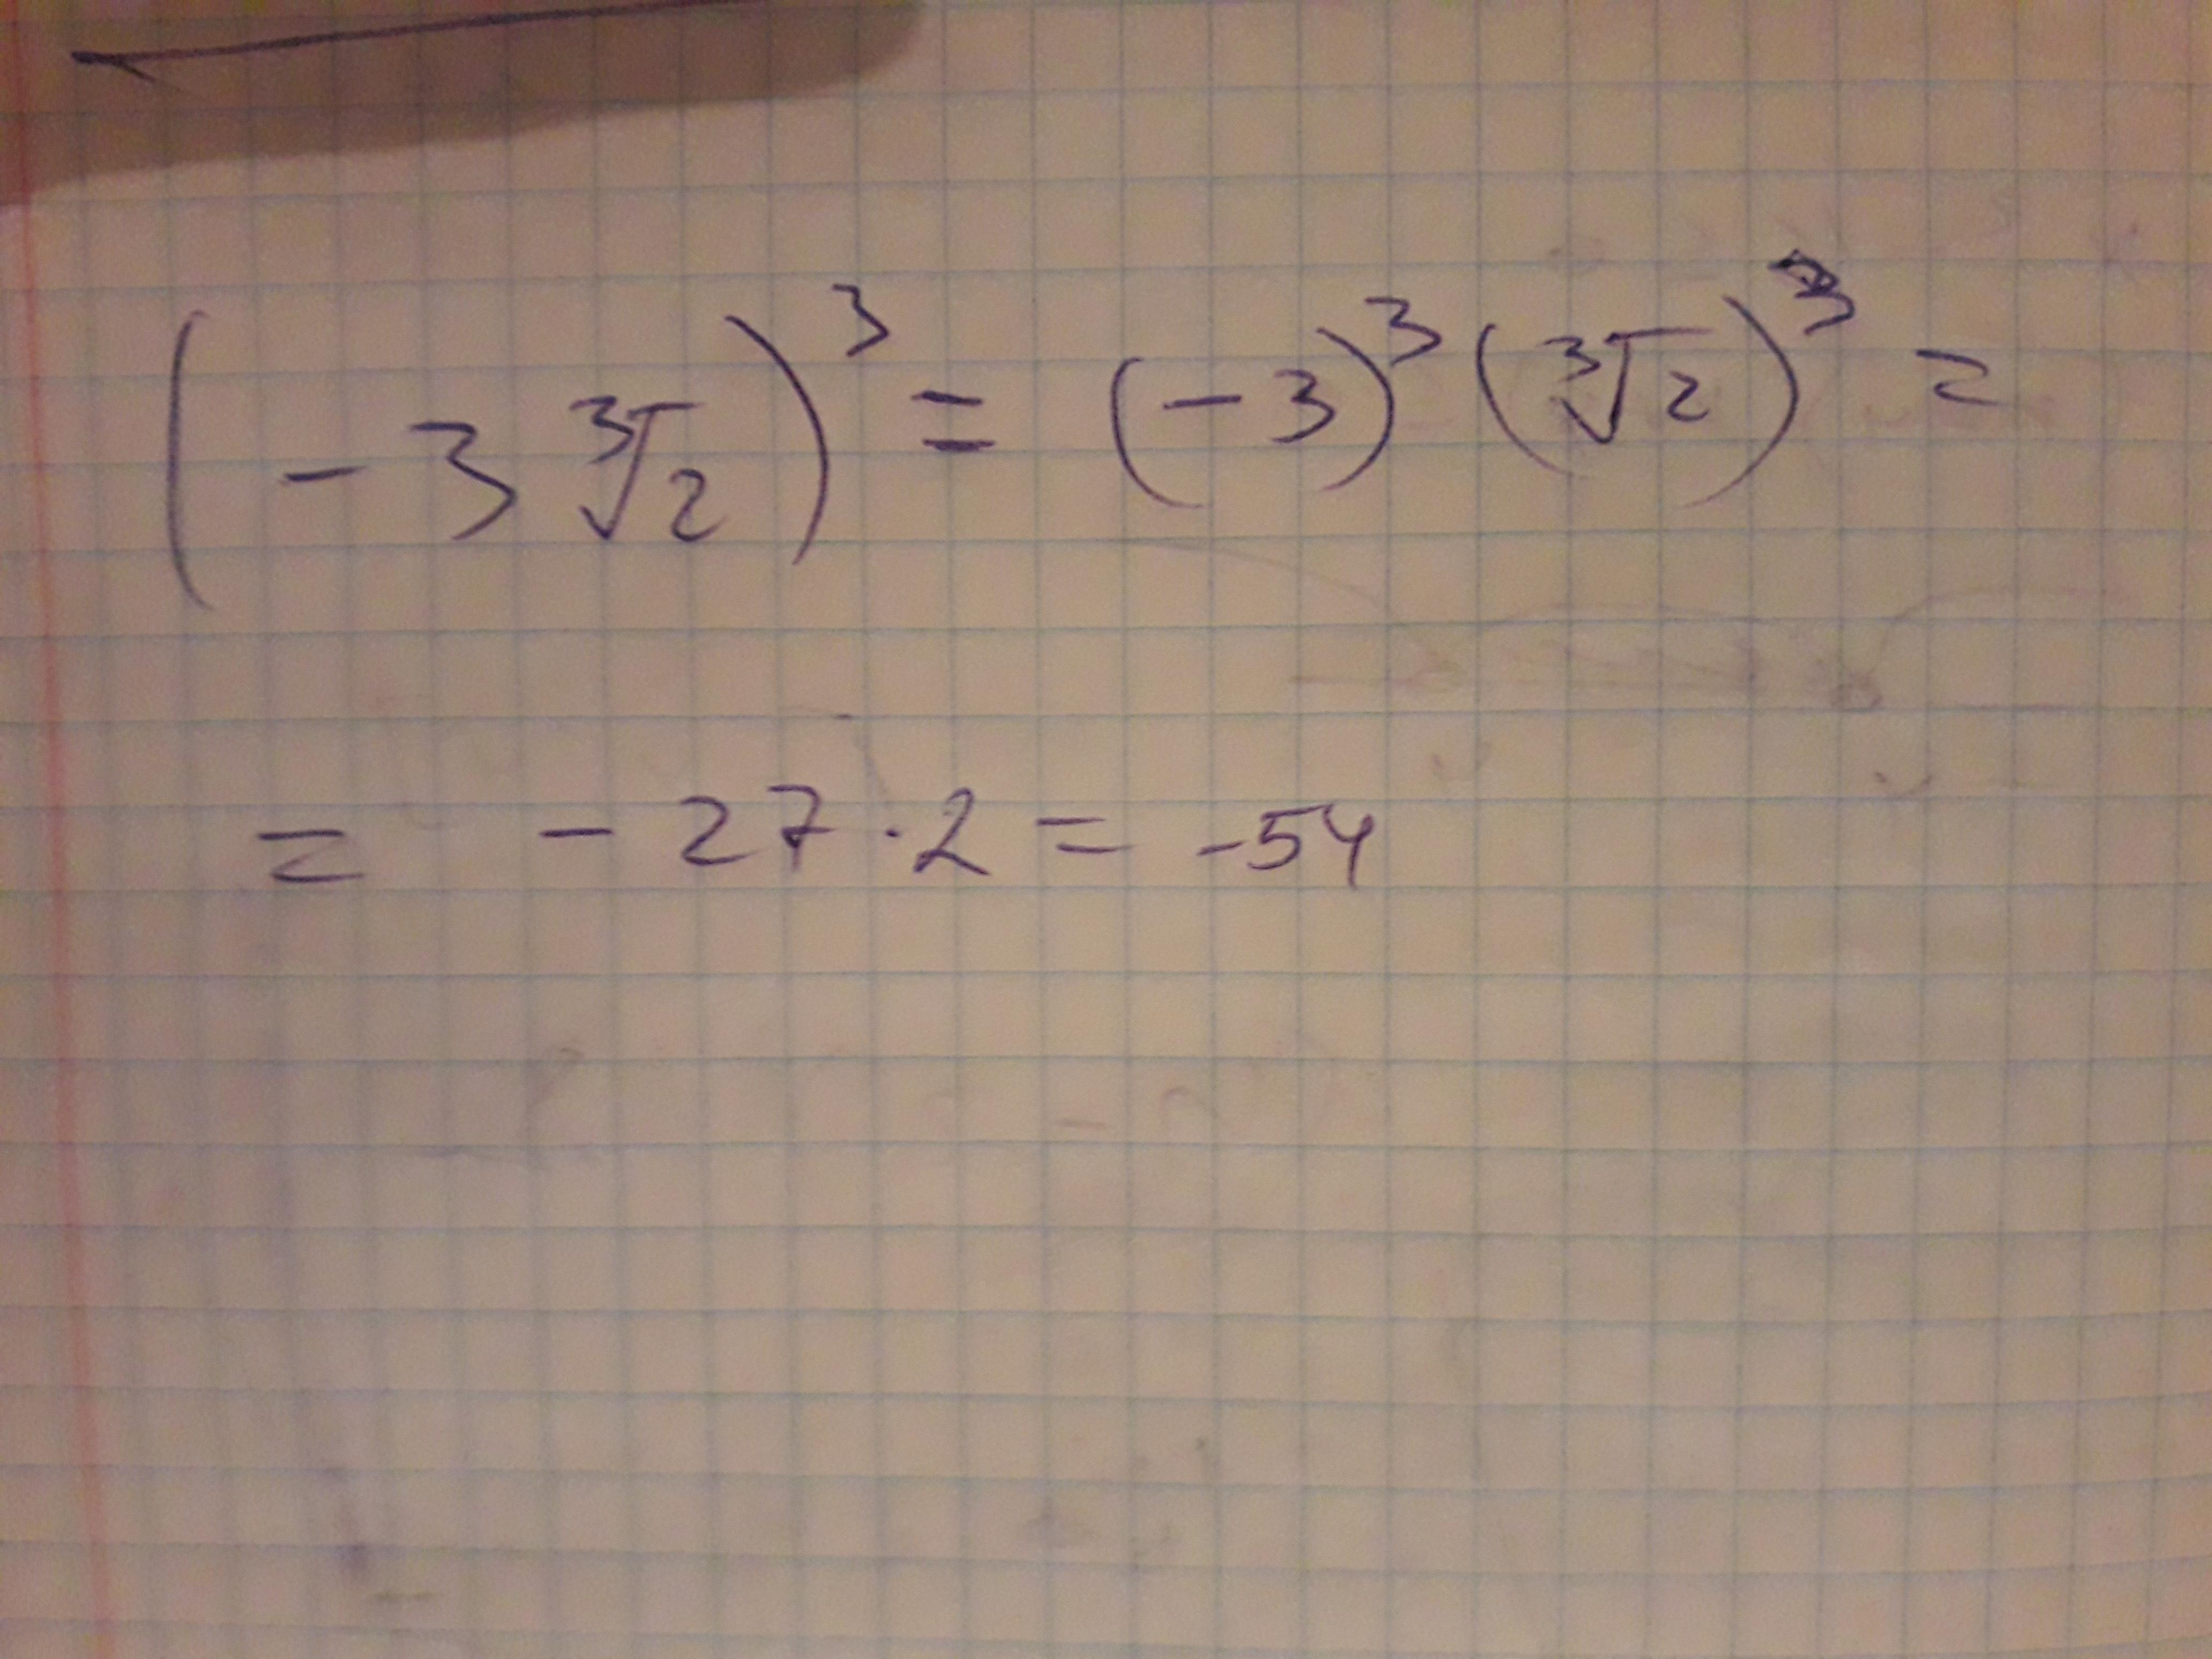 (-3∛2)³ = (-3)³(∛2)³ =
= -27·2 = -54